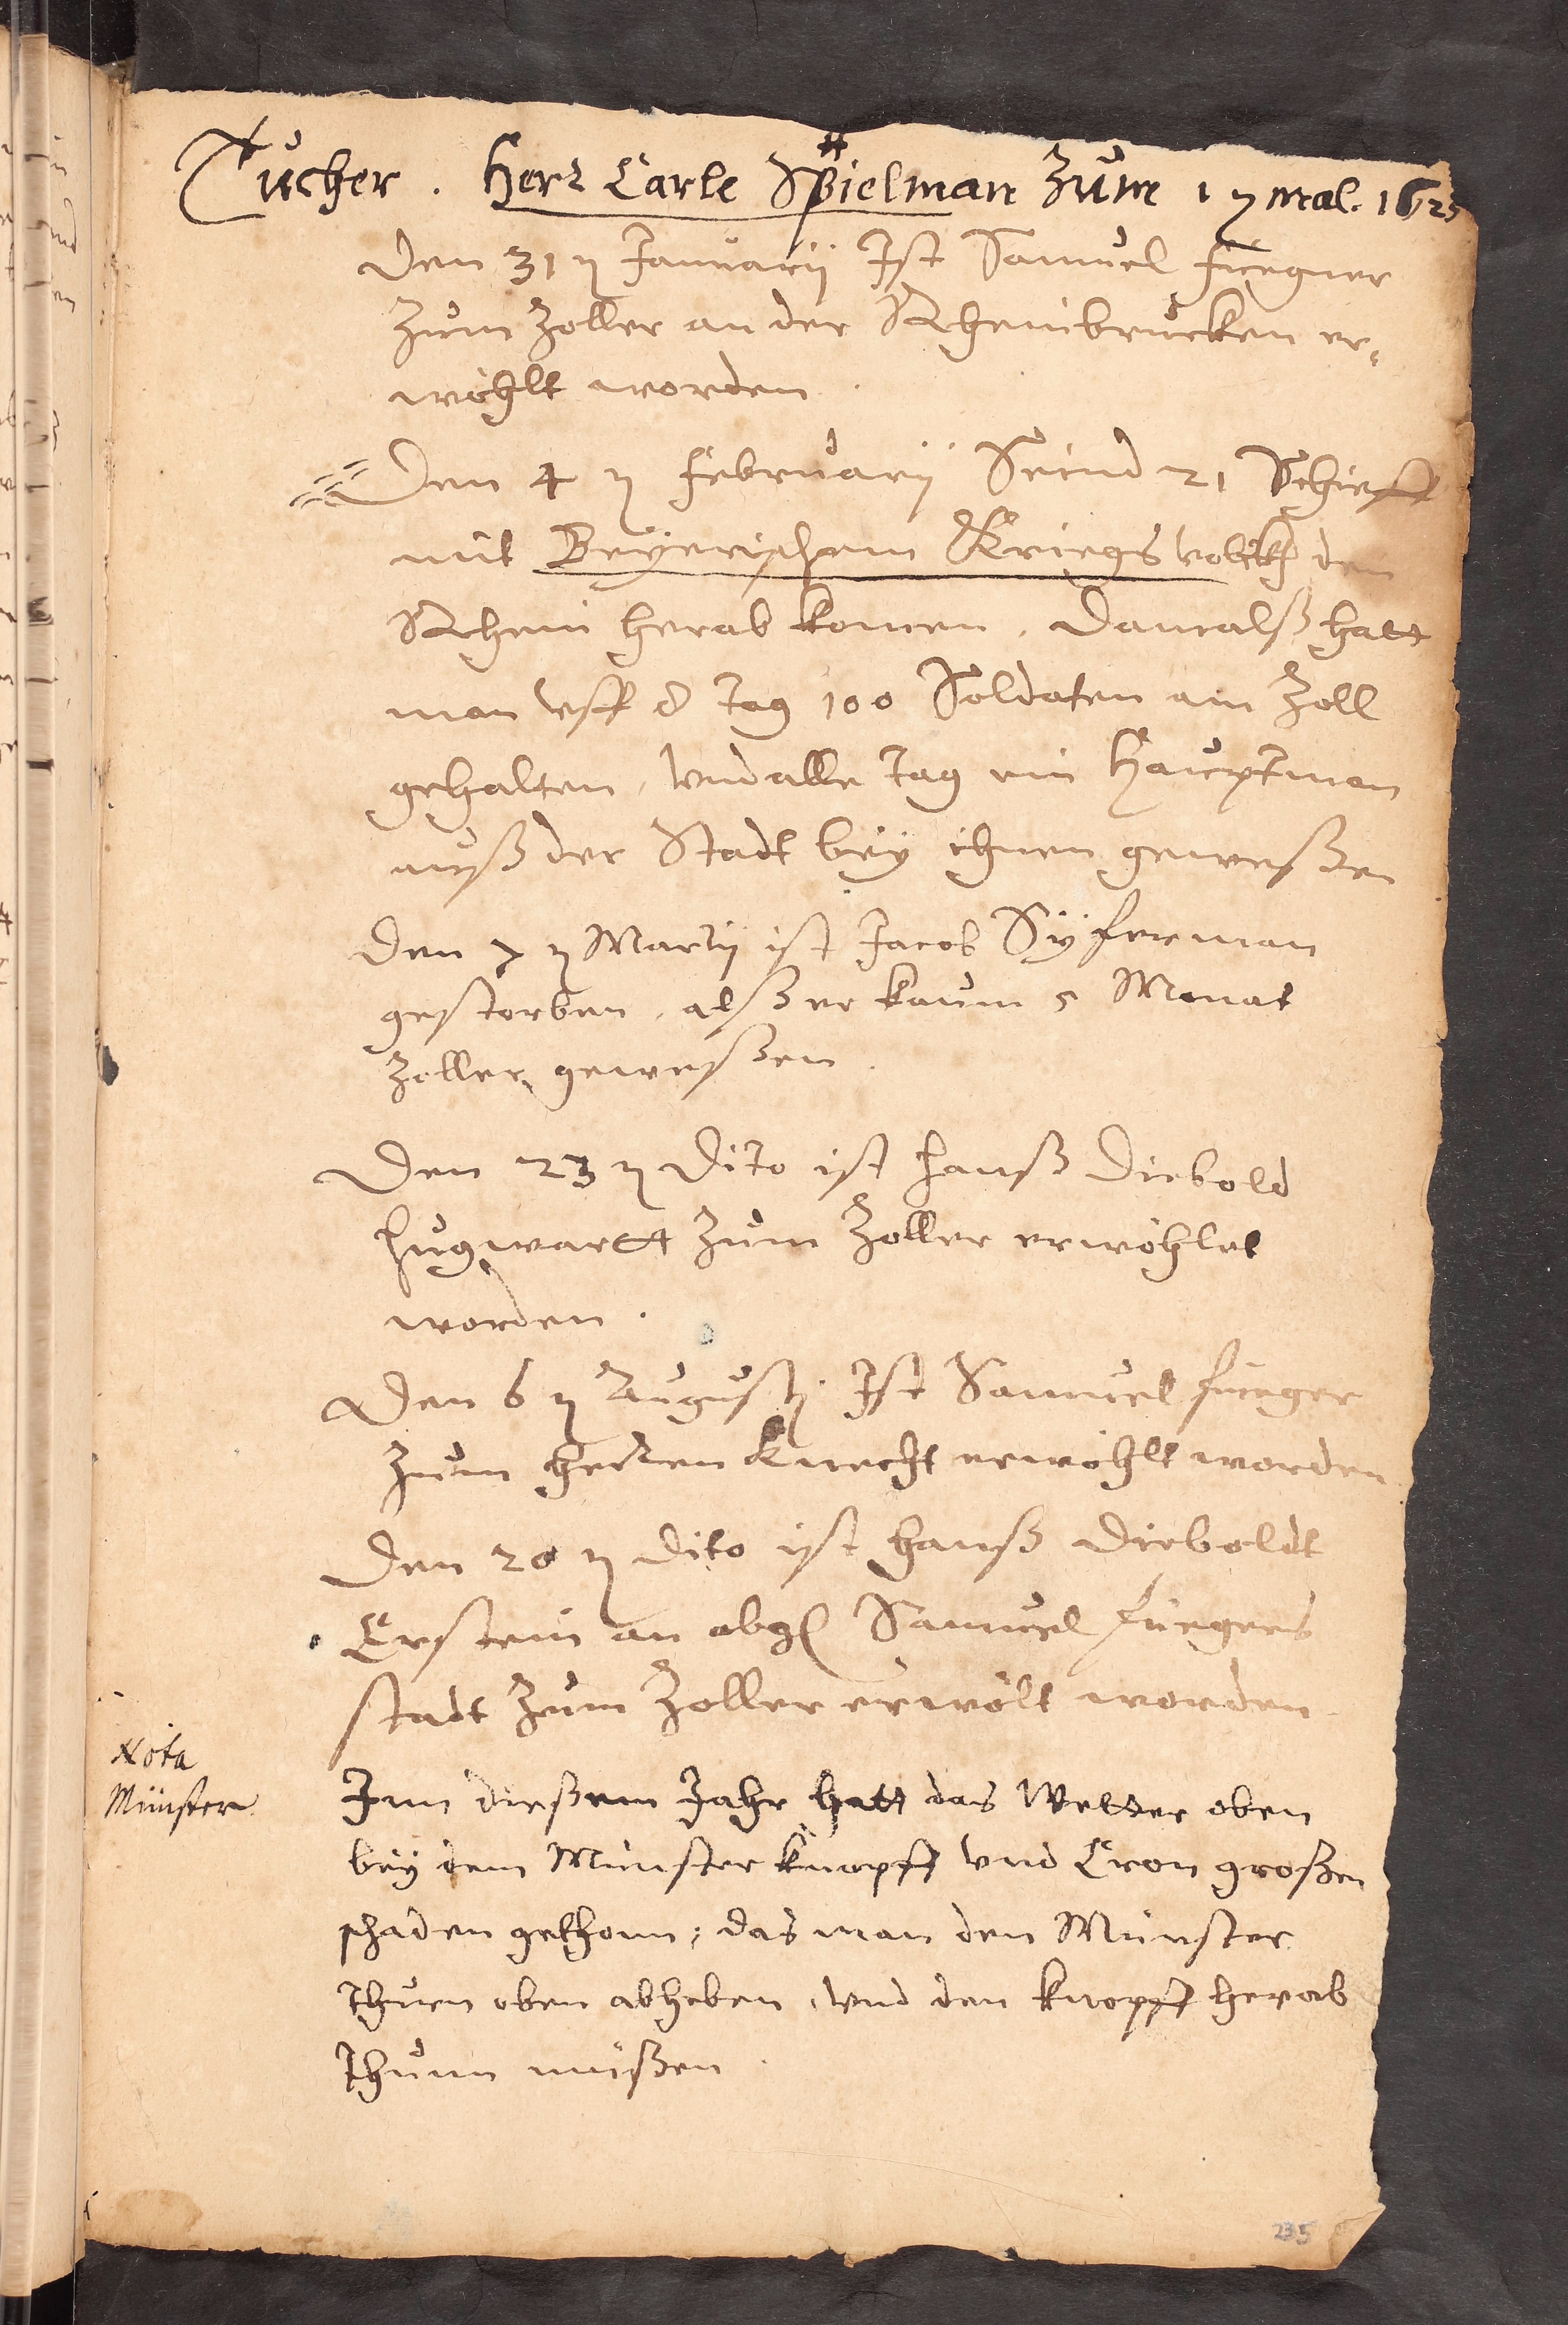 Tücher. Herr Carle Spielman zum 1 ten mal. 1625
Den 31 ten Januarij Ist Samuel Füegner
zum Zoller an der Rheinbrucken er,
wöhlt worden.
Den 4 ten Februarij Seind 21 Schieff
mit Beyerischem Kriegs volckh den
Rhein herab komen, damalß hatt
man vff d tag 100 Soldaten am Zoll
gehalten, vnd alle tag ein Hauptman
auß der Stadt bey ihnen geweßen
den 7 ten Martij ist Jacob Syferman
gestorben, alß er kaum 5 Monat
Zoller geweßen.
Den 23 ten Dito ist Hanß Diebold
Hugwartt zum Zoller erwöhlet
worden.
Den 6 ten Augustj Ist Samuel Füeger
zum Herren Knecht erwöhlt worden
Den 20 ten dito ist Hanß Dieboldt
Erstein an obgl Samuel Füegers
stadt zum Zoller erwölt worden
Nota
Münster
Inn dießem Jahr hatt das Wetter oben
bey dem Münster knopff vnd Cron großen
schaden gethonn; das man den Münster
thurn oben abheben, vnd den knopff herab
thunn müßen.
235